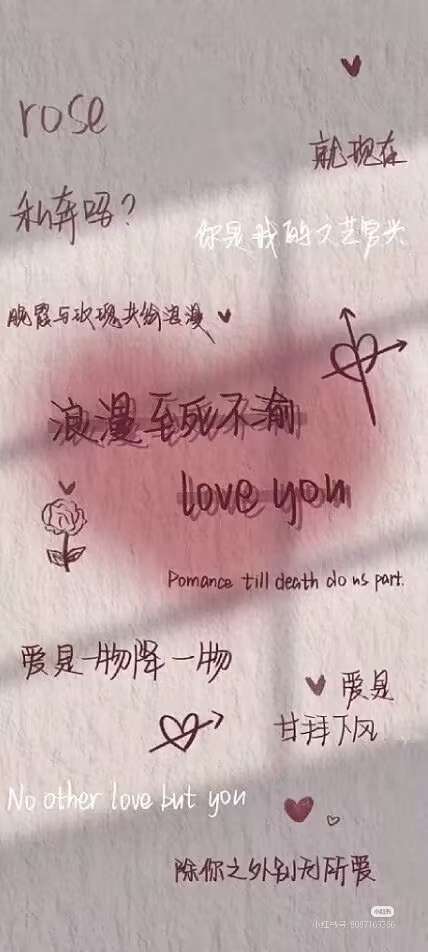 rose
就现在
私奔吗？
你是我的文艺冒头
晚霞与玫瑰共给浪漫
浪漫至死不渝
love you
Pomance till death do us part.
爱是一物降一物
爱是
甘拜下风
No other love but you
除你之外别无所爱
小红书